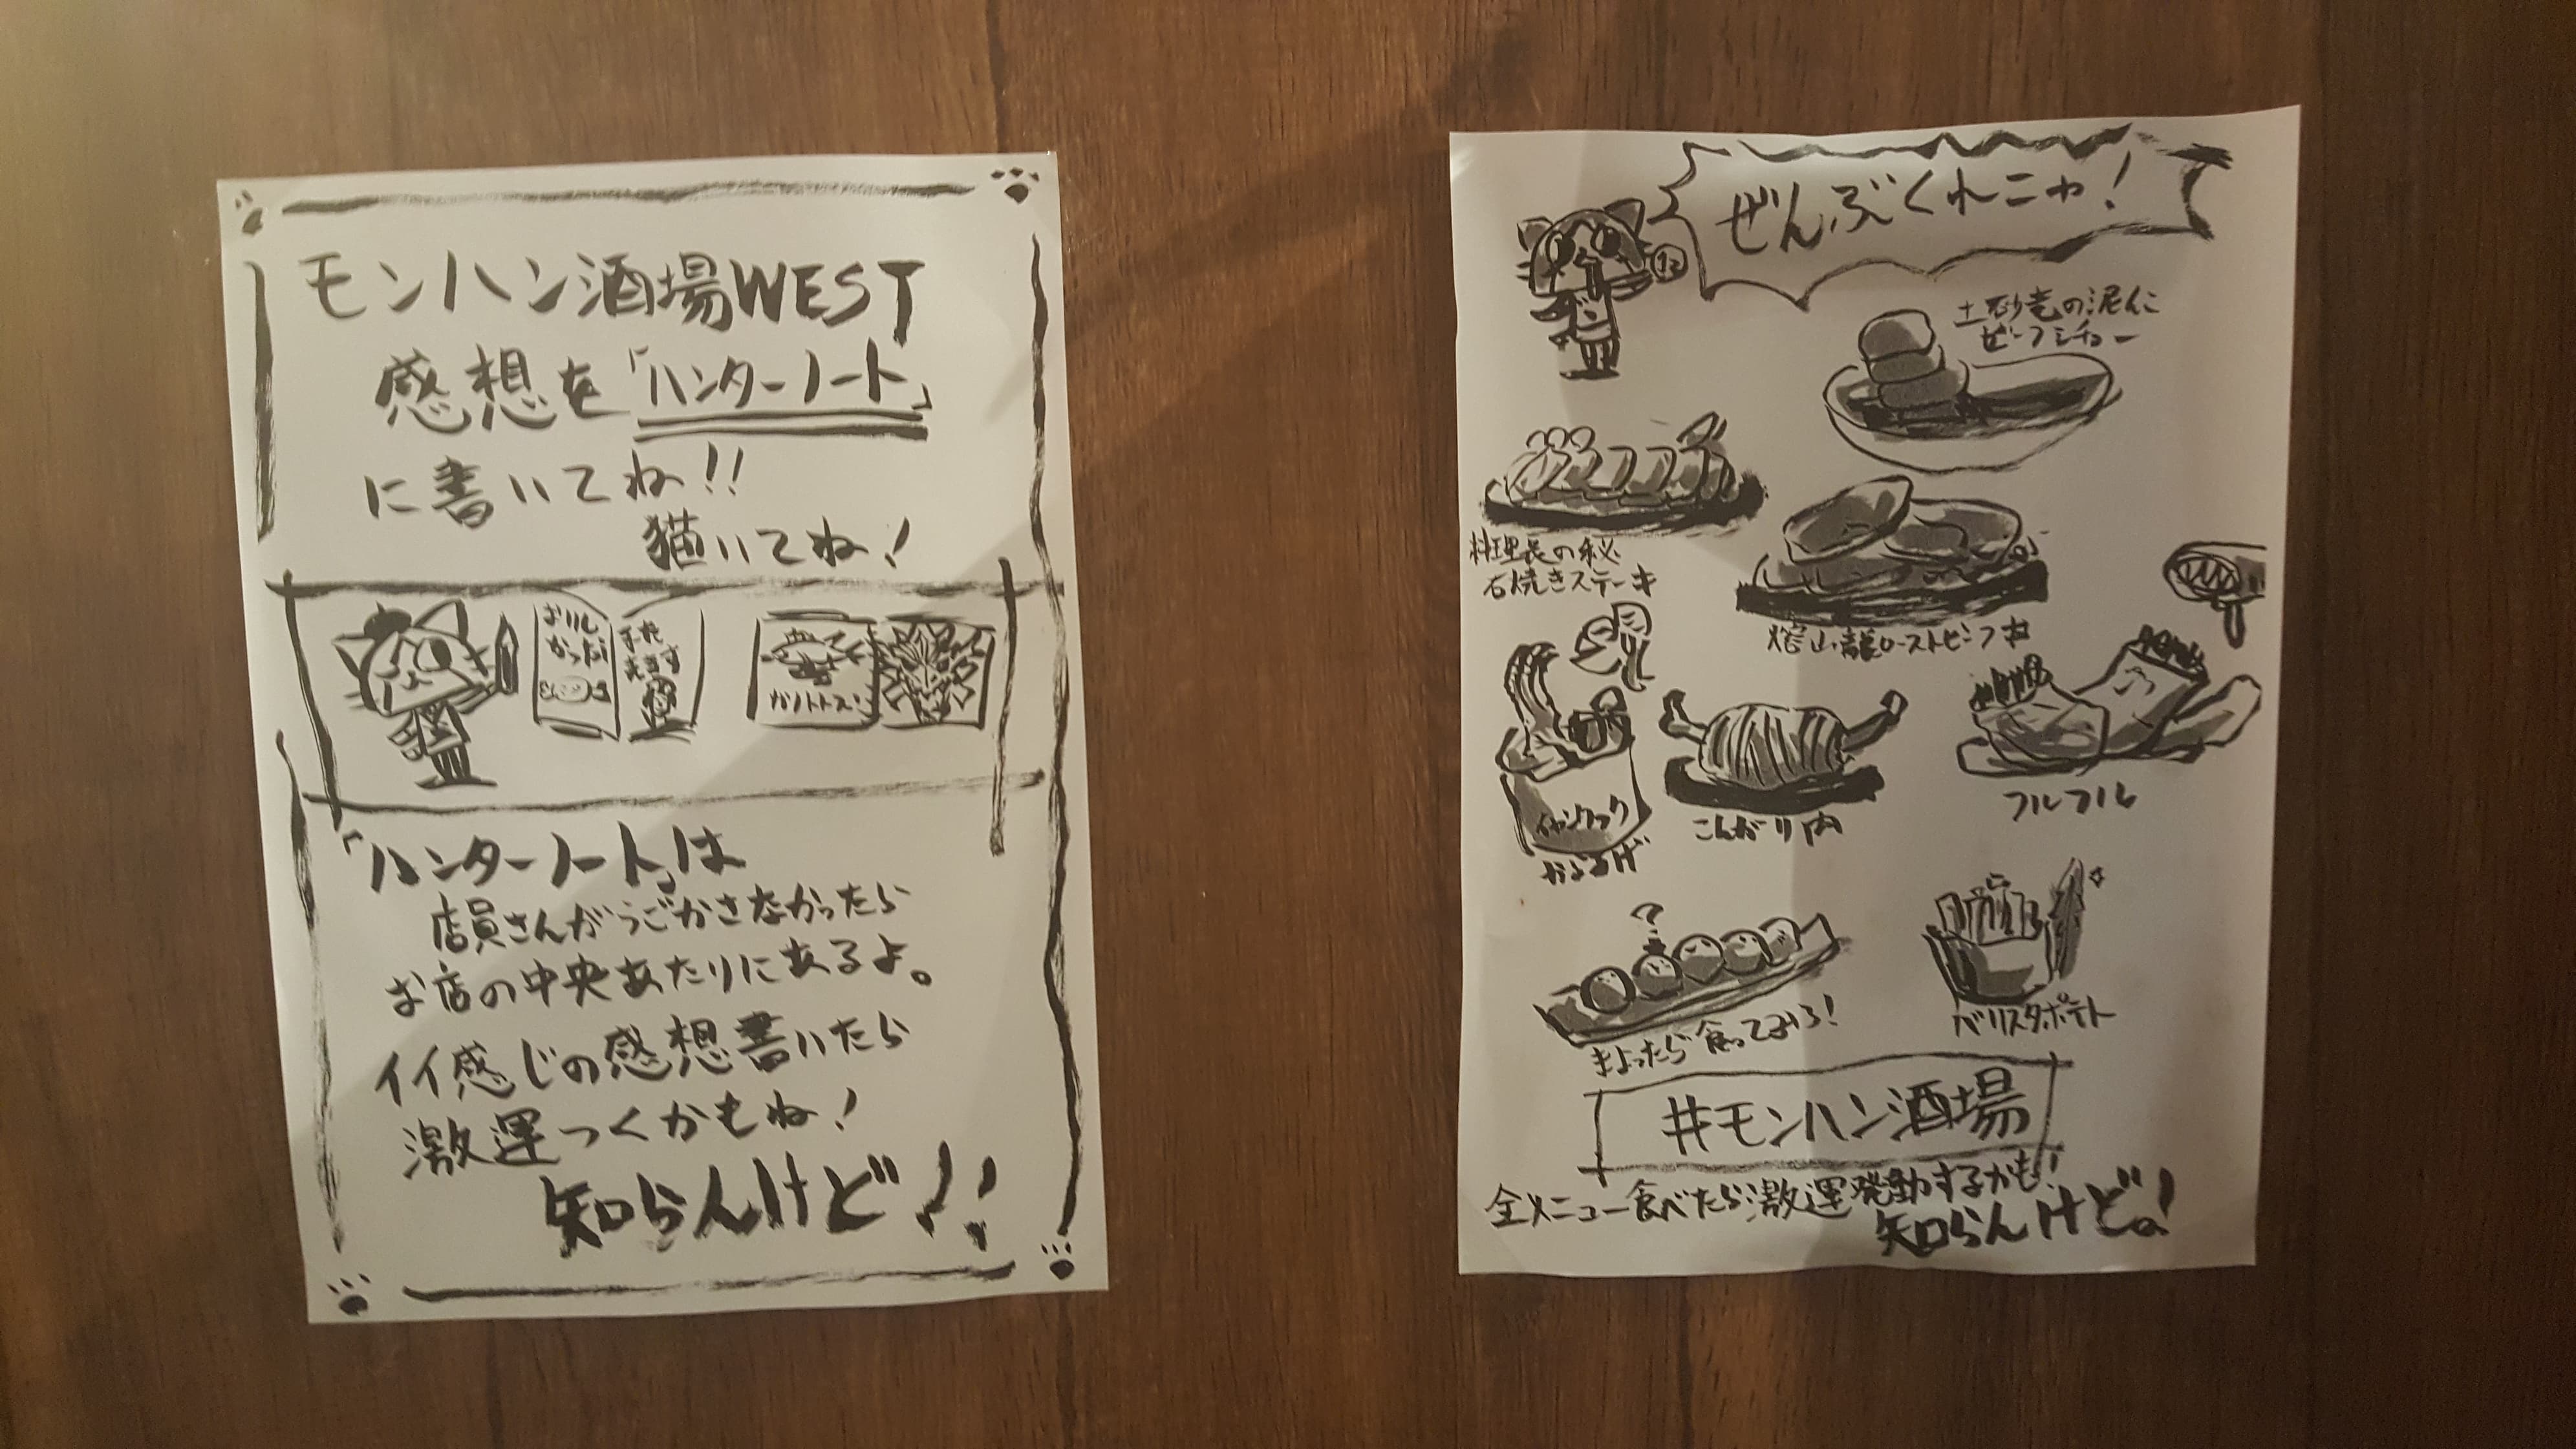 モンハン酒場WEST
感想を「ハンターノート」
に書いてね!!
猫いてね!
おいし
かった
また
きます
ガノトトス
「ハンターノート」は
店員さんがうごかさなかったら
お店の中央あたりにあるよ。
イイ感じの感想書いたら
激運つくかもね!
知らんけど!!
ぜんぶくれニャ!
土砂竜の泥んこ
ビーフシチュー
料理長の秘
石焼きステーキ
熔山龍ローストビーフ丼
イャンクック
からあげ
こんがり肉
フルフル
きまったら食ってみろ!
バリスタポテト
#モンハン酒場
全メニュー食べたら激運発動するかも!
知らんけど。!